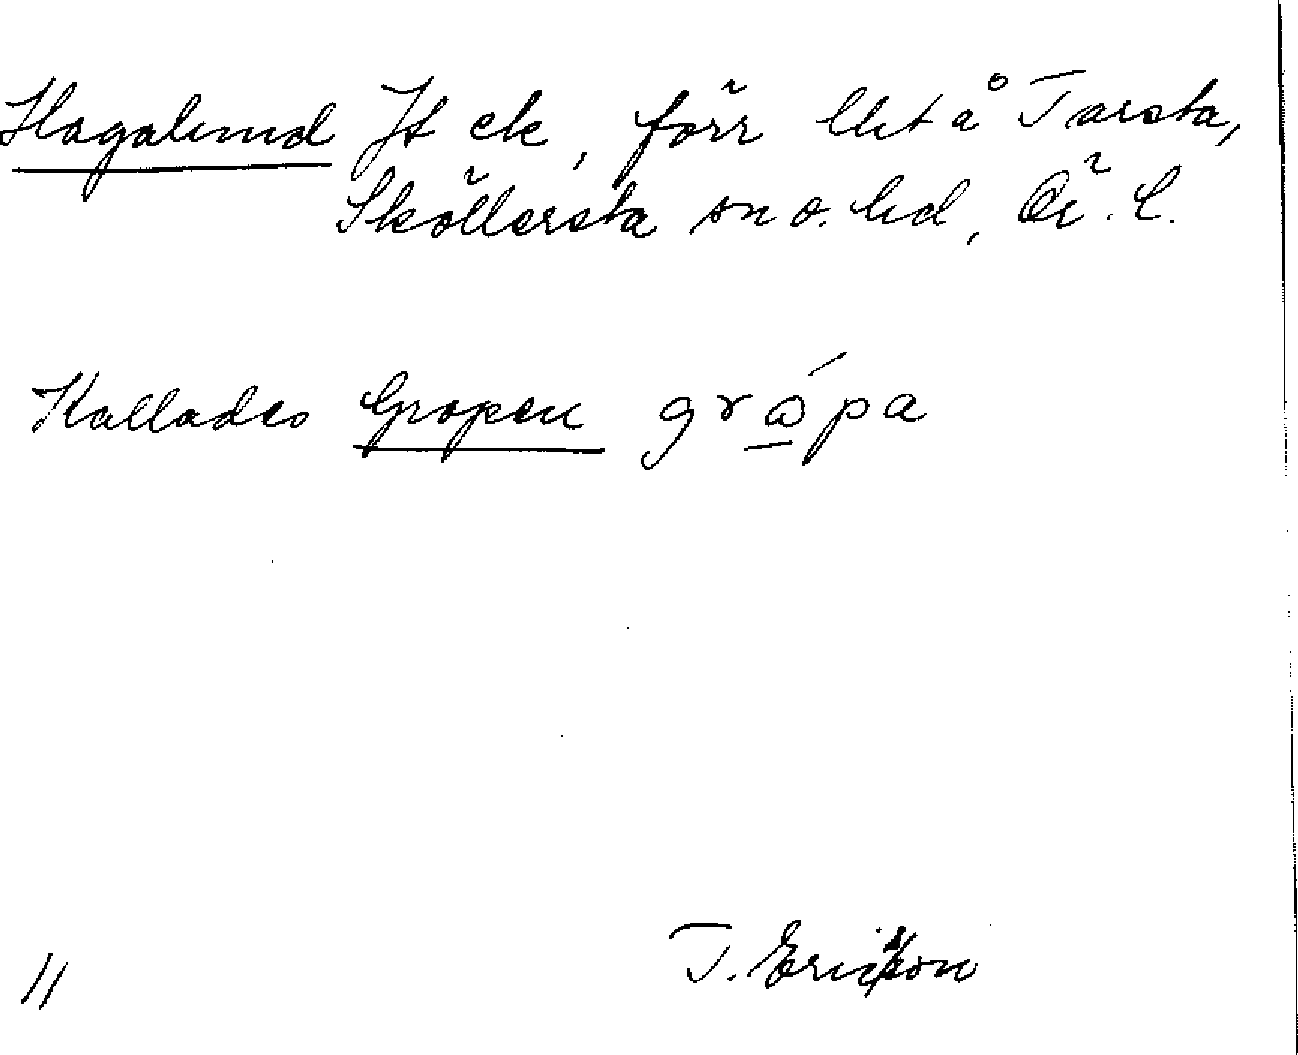 Hagalund Jt ek, förr lht å Tarsta,
Sköllersta sn o. hd, Ör. l.
Kallades Gropen grópa
T. Ericson
11